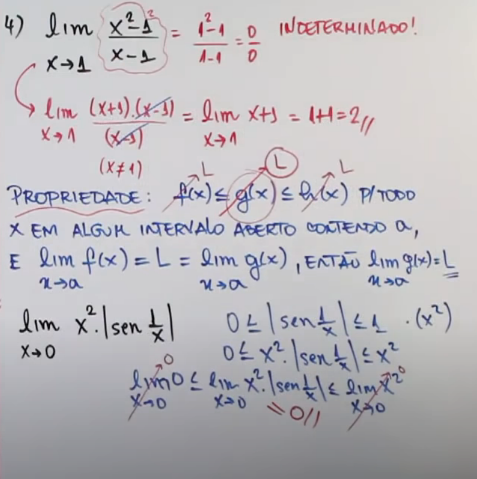 4) lim x→1 x²-1²/x-1 = 1²-1/1-1 = 0/0 INDETERMINADO!
lim x→1 (x+1).(x-1)/(x-1) = lim x→1 x+1 = 1+1=2//
(x≠1)
L L L
PROPRIEDADE: f(x) ≤ g(x) ≤ h(x) P/ TODO
X EM ALGUM INTERVALO ABERTO CONTENDO a,
E lim x→a f(x) = L = lim x→a g(x), ENTÃO lim x→a g(x)=L
lim x→0 x².|sen 1/x| 0 ≤ |sen 1/x| ≤ 1 .(x²)
0 ≤ x².|sen 1/x| ≤ x²
lim x→0 0 ≤ lim x→0 x².|sen 1/x| ≤ lim x→0 x²
0 = 0// 0